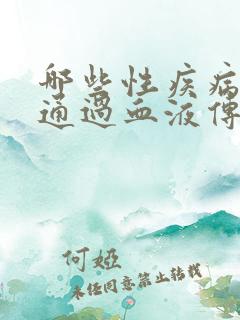 哪些性疾病
通过血液传
何娅
未经同意禁止转载